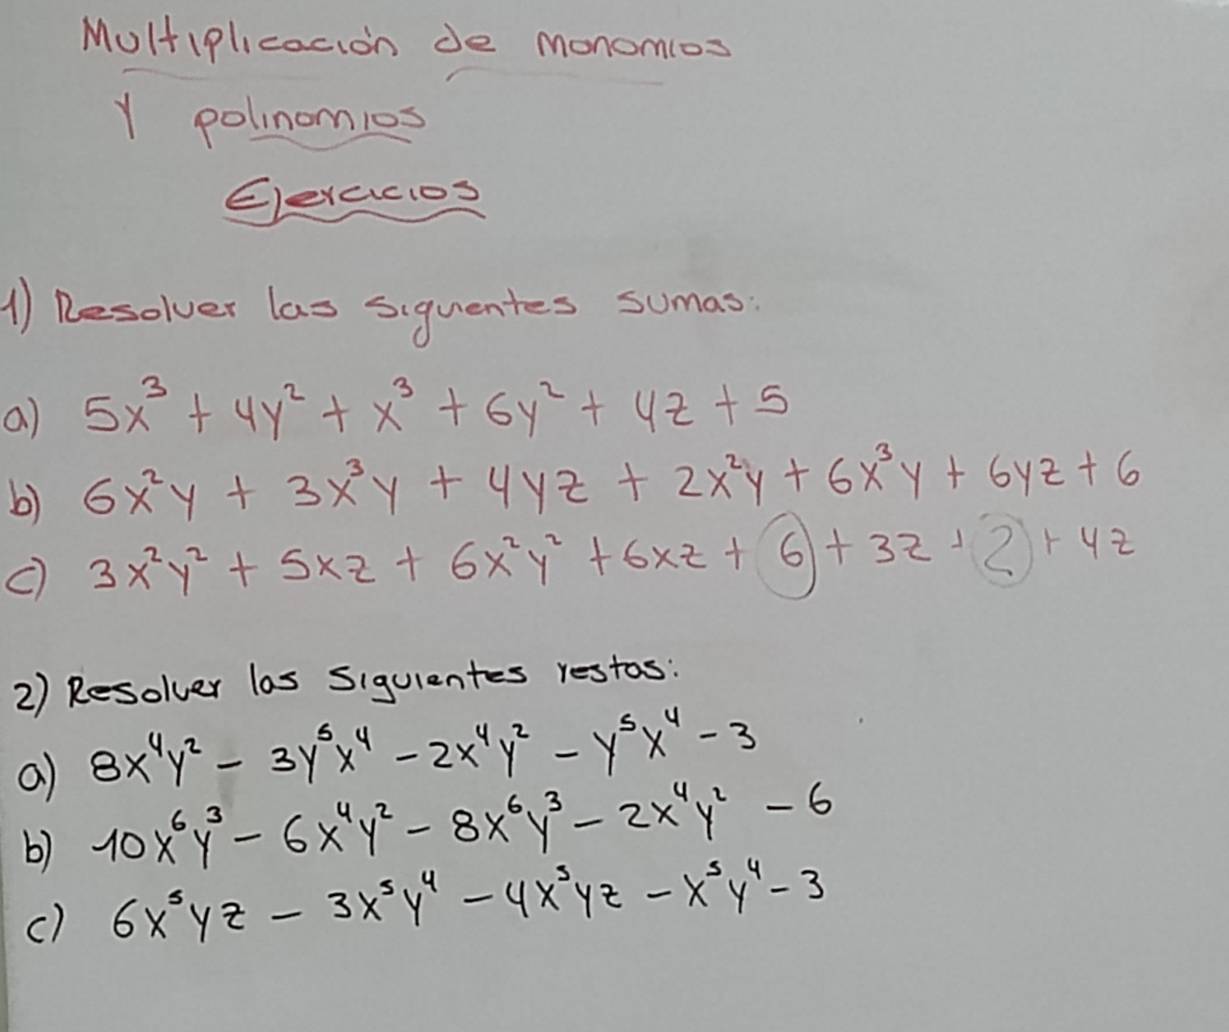 Multiplicación de monomios
Y polinomios
Ejercicios
1) Resolver las siguientes sumas:
a) 5x³ + 4y² + x³ + 6y² + 4z + 5
b) 6x²y + 3x³y + 4yz + 2x²y + 6x³y + 6yz + 6
c) 3x²y² + 5xz + 6x²y² + 6xz + 6 + 3z + 2 + 4z
2) Resolver las siguientes restas:
a) 8x⁴y² - 3y⁵x⁴ - 2x⁴y² - y⁵x⁴ - 3
b) 10x⁶y³ - 6x⁴y² - 8x⁶y³ - 2x⁴y² - 6
c) 6x⁵yz - 3x⁵y⁴ - 4x⁵yz - x⁵y⁴ - 3